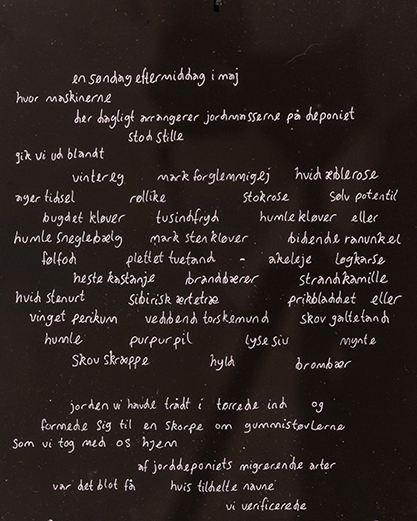 en søndag eftermiddag i maj
hvor maskinerne
der dagligt arrangerer jordmasserne på deponiet
stod stille
gik vi ud blandt
vintereg mark forglemmigej hvid æblerose
ager tidsel røllike stokrose sølv potentil
bugdet kløver tusindfryd humle kløver eller
humle sneglebælg mark stenkløver bidende ranunkel
følfod plettet tvetand - akeleje løgkarse
heste kastanje brandbærer strandkamille
hvid stenurt sibirisk ærtetræ prikbladdet eller
vinget perikum vedbend torskemund skov galtetand
humle purpur pil lyse siv mynte
skov skræppe hyld brombær
jorden vi havde trådt i tørrede ind og
formede sig til en skorpe om gummistøvlerne
som vi tog med os hjem
af jorddeponiets migrerende arter
var det blot få hvis tildelte navne
vi verificerede